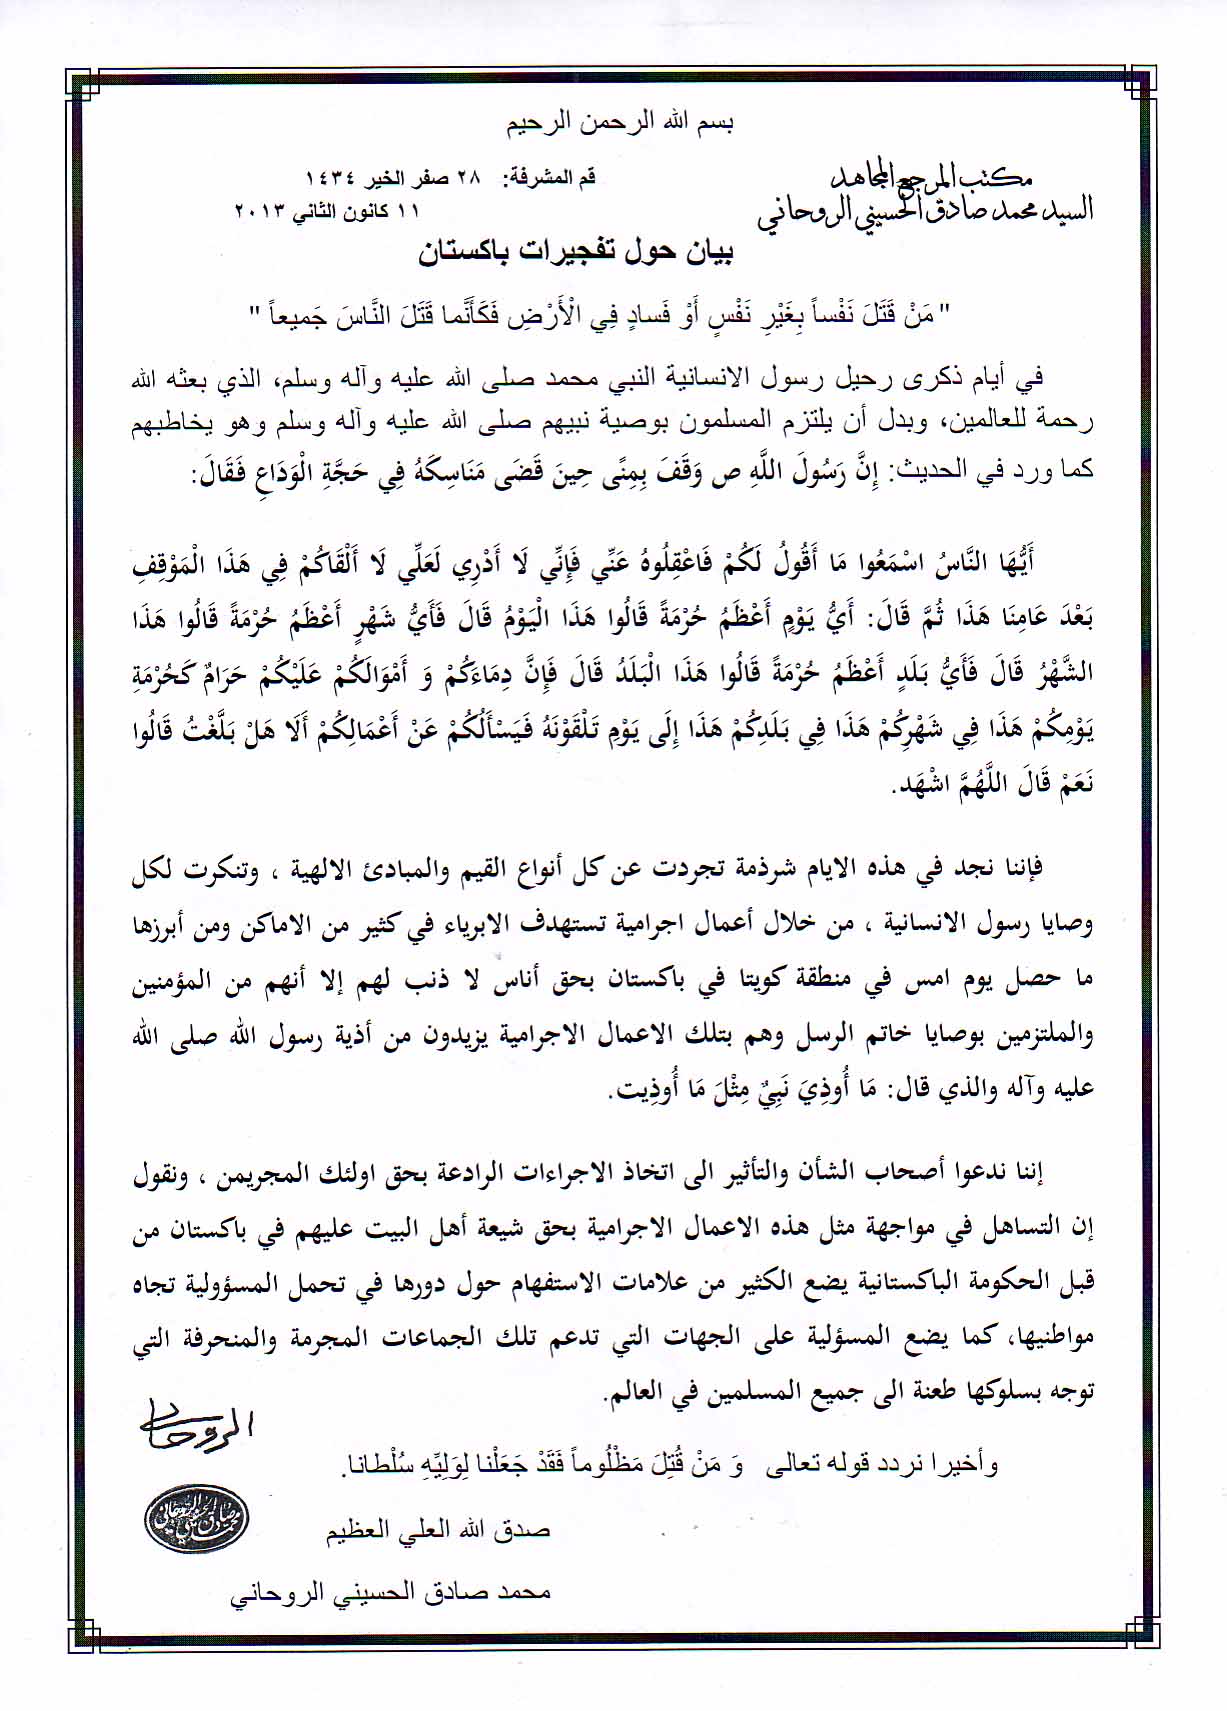 بسم الله الرحمن الرحيم
مكتب المرجع المجاهد
السيد محمد صادق الحسيني الروحاني
قم المشرفة: ٢٨ صفر الخير ١٤٣٤
١١ كانون الثاني ٢٠١٣
بيان حول تفجيرات باكستان
" مَنْ قَتَلَ نَفْساً بِغَيْرِ نَفْسٍ أَوْ فَسادٍ فِي الْأَرْضِ فَكَأَنَّما قَتَلَ النَّاسَ جَميعاً "
في أيام ذكرى رحيل رسول الانسانية النبي محمد صلى الله عليه وآله وسلم، الذي بعثه الله
رحمة للعالمين، وبدل أن يلتزم المسلمون بوصية نبيهم صلى الله عليه وآله وسلم وهو يخاطبهم
كما ورد في الحديث: إِنَّ رَسُولَ اللَّهِ ص وَقَفَ بِمِنًى حِينَ قَضَى مَنَاسِكَهُ فِي حَجَّةِ الْوَدَاعِ فَقَالَ:
أَيُّهَا النَّاسُ اسْمَعُوا مَا أَقُولُ لَكُمْ فَاعْقِلُوهُ عَنِّي فَإِنِّي لَا أَدْرِي لَعَلِّي لَا أَلْقَاكُمْ فِي هَذَا الْمَوْقِفِ
بَعْدَ عَامِنَا هَذَا ثُمَّ قَالَ: أَيُّ يَوْمٍ أَعْظَمُ حُرْمَةً قَالُوا هَذَا الْيَوْمُ قَالَ فَأَيُّ شَهْرٍ أَعْظَمُ حُرْمَةً قَالُوا هَذَا
الشَّهْرُ قَالَ فَأَيُّ بَلَدٍ أَعْظَمُ حُرْمَةً قَالُوا هَذَا الْبَلَدُ قَالَ فَإِنَّ دِمَاءَكُمْ وَ أَمْوَالَكُمْ عَلَيْكُمْ حَرَامٌ كَحُرْمَةِ
يَوْمِكُمْ هَذَا فِي شَهْرِكُمْ هَذَا فِي بَلَدِكُمْ هَذَا إِلَى يَوْمِ تَلْقَوْنَهُ فَيَسْأَلُكُمْ عَنْ أَعْمَالِكُمْ أَلَا هَلْ بَلَّغْتُ قَالُوا
نَعَمْ قَالَ اللَّهُمَّ اشْهَد.
فإننا نجد في هذه الايام شرذمة تجردت عن كل أنواع القيم والمبادئ الالهية ، وتنكرت لكل
وصايا رسول الانسانية ، من خلال أعمال اجرامية تستهدف الابرياء في كثير من الاماكن ومن أبرزها
ما حصل يوم امس في منطقة كويتا في باكستان بحق أناس لا ذنب لهم إلا أنهم من المؤمنين
والملتزمين بوصايا خاتم الرسل وهم بتلك الاعمال الاجرامية يزيدون من أذية رسول الله صلى الله
عليه وآله والذي قال: مَا أُوذِيَ نَبِيٌ مِثْلَ مَا أُوذِيت.
إننا ندعوا أصحاب الشأن والتأثير الى اتخاذ الاجراءات الرادعة بحق اولئك المجريمن ، ونقول
إن التساهل في مواجهة مثل هذه الاعمال الاجرامية بحق شيعة أهل البيت عليهم في باكستان من
قبل الحكومة الباكستانية يضع الكثير من علامات الاستفهام حول دورها في تحمل المسؤولية تجاه
مواطنيها، كما يضع المسؤلية على الجهات التي تدعم تلك الجماعات المجرمة والمنحرفة التي
توجه بسلوكها طعنة الى جميع المسلمين في العالم.
الروحاني
وأخيرا نردد قوله تعالى وَ مَنْ قُتِلَ مَظْلُوماً فَقَدْ جَعَلْنا لِوَلِيِّهِ سُلْطانا.
صدق الله العلي العظيم
محمد صادق الحسيني الروحاني